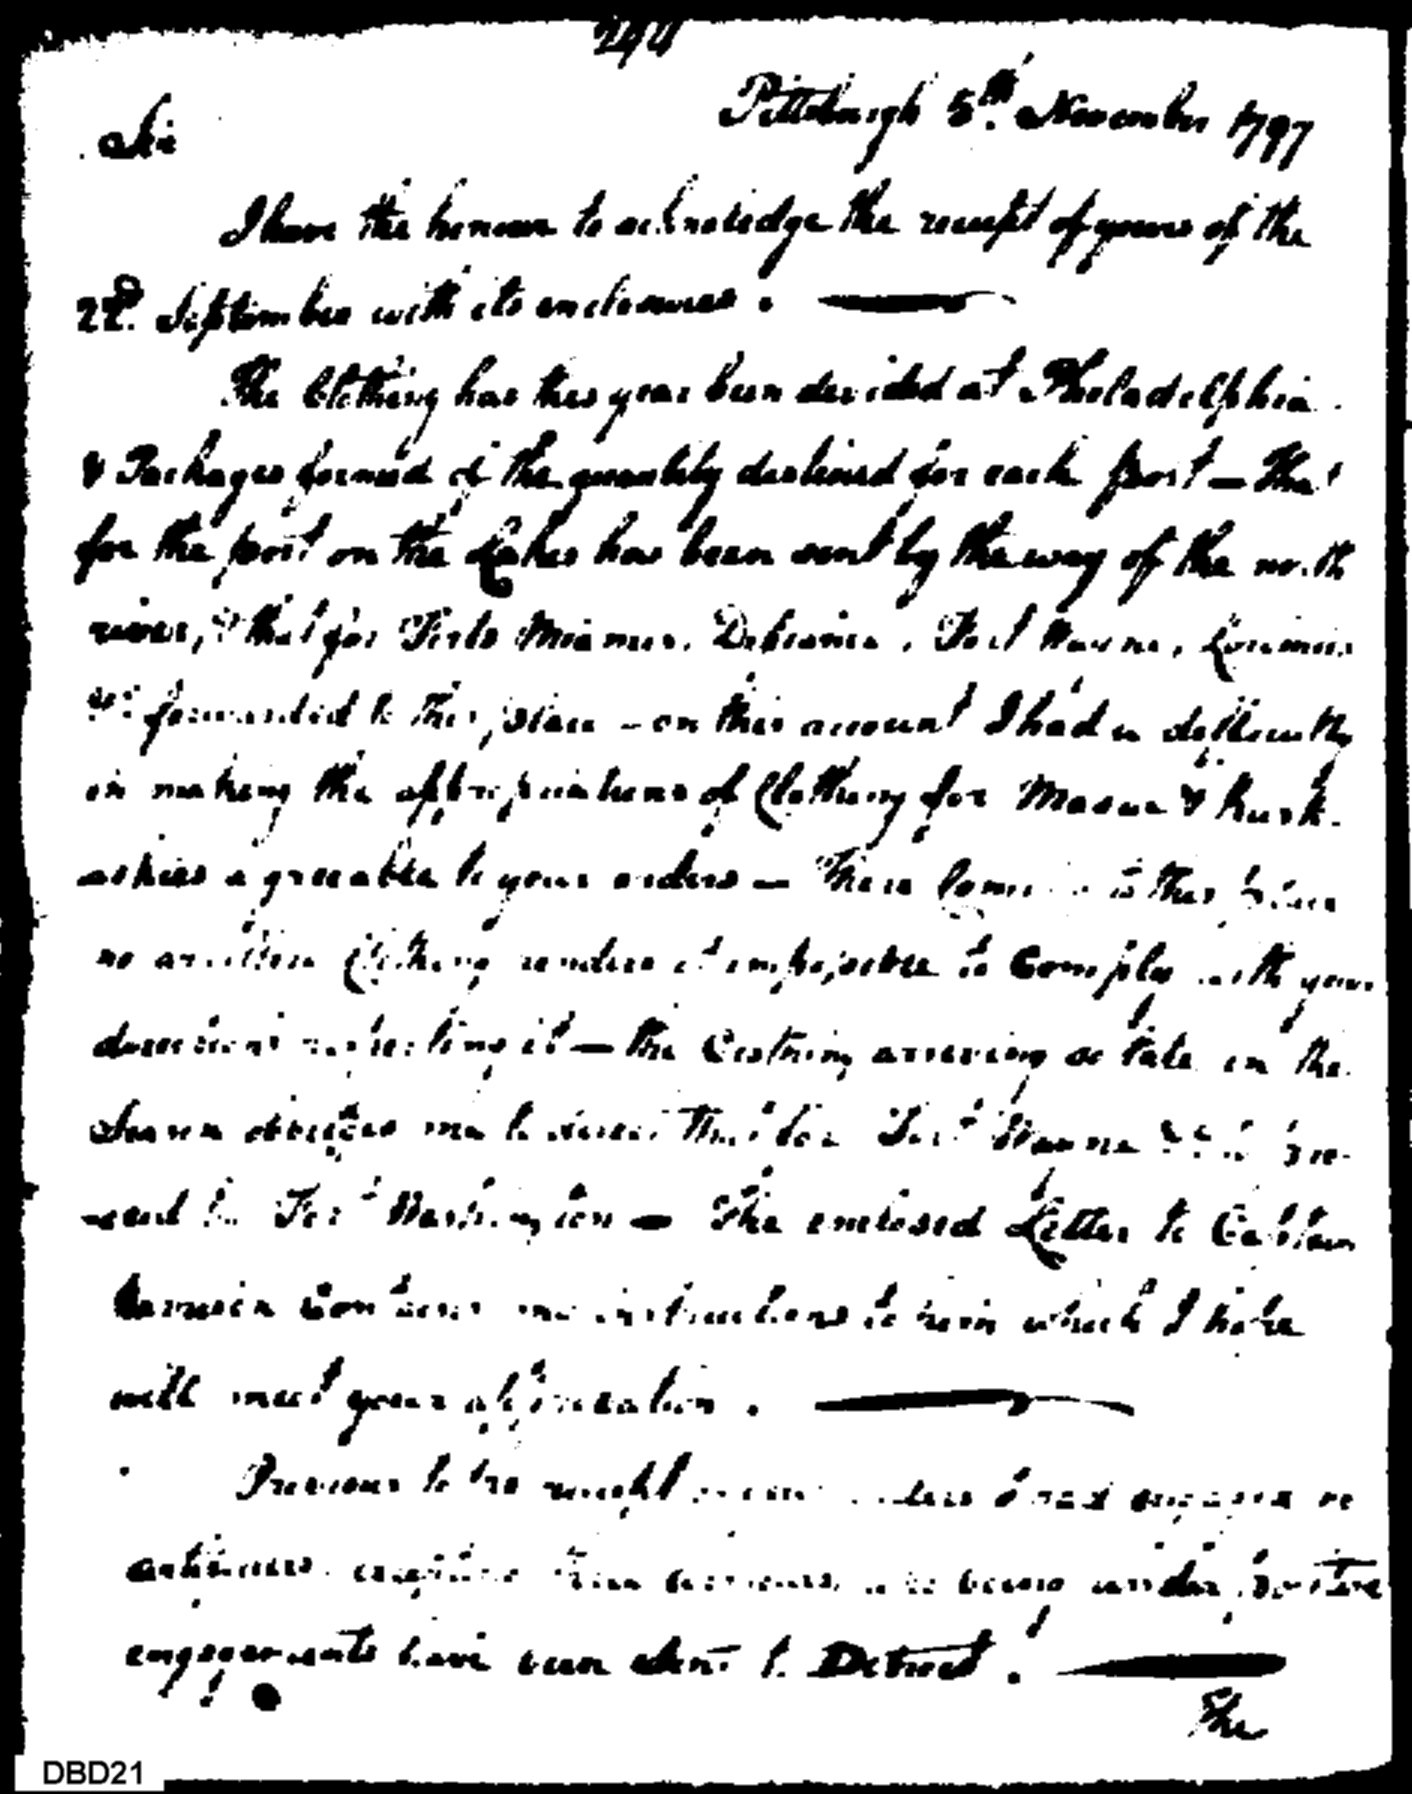 244
Pittsburgh 5th. November 1797
Sir
I have the honour to acknoledge the receipt of yours of the
22d. September with its enclosures.
The Clothing has this year been devided at Philadelphia
& Packages formed of the quantity destined for each post — That
for the post on the Lakes has been sent by the way of the north
river, & that for Forts Miamis, Defiance, Fort Wayne, Loramies
&c forwarded to this place — on this account I had a difficulty
in making the appropriations of Clothing for Massac & Kask-
askias agreeable to your orders — There to this place
no artillery Clothing renders it impossible to Comply with your
directions respecting it — the Clothing arriving so late in the
Season obliges me to direct that for Fort Wayne &c to be
sent to Fort Washington — The enclosed Letter to Captain
Harrison Contains my instructions to him which I hope
will meet your approbation.
Previous to the receipt of your orders I had engaged
artificers being under positive
engagements have been sent to Detroit.
The
DBD21